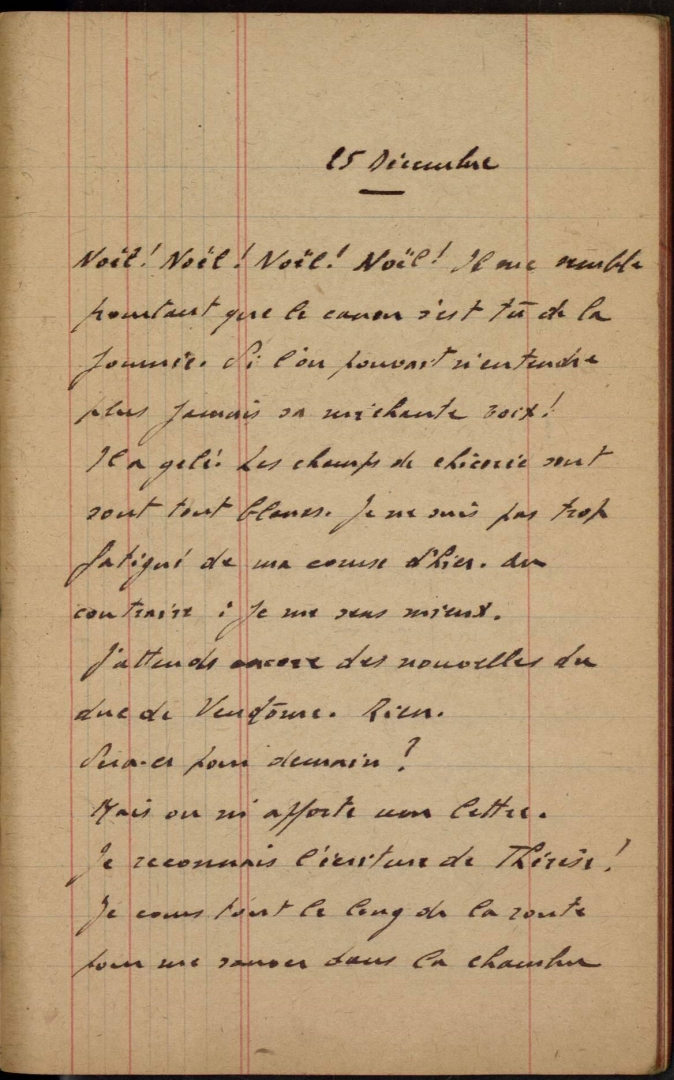 25 Décembre
Noël! Noël! Noël! Noël! Il me semble
pourtant que le canon s'est tû de la
journée. Si l'on pouvait n'entendre
plus jamais sa méchante voix!
Il a gelé. Les champs de chicorée sont
sont tout blancs. Je ne suis pas trop
fatigué de ma course d'hier. Au
contraire : je me sens mieux.
J'attends encore des nouvelles du
duc de Vendôme. Rien.
Sera-ce pour demain ?
Mais on m'apporte une lettre.
Je reconnais l'écriture de Thérèse!
Je cours tout le long de la route
pour me sauver dans la chambre